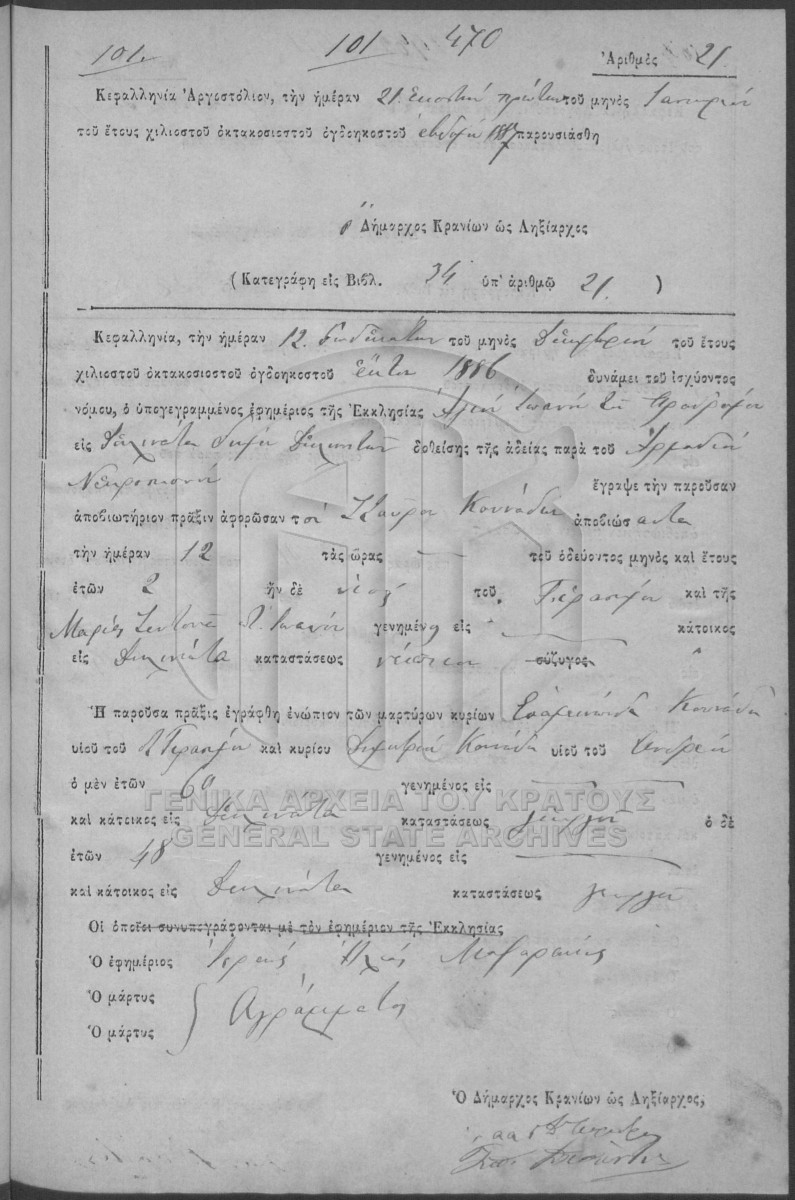 101. 101 470 Ἀριθμὸς 21.
Κεφαλληνία Ἀργοστόλιον, τὴν ἡμέραν 21. Εἰκοστὴν πρώτην τοῦ μηνὸς Ἰανουαρίου
τοῦ ἔτους χιλιοστοῦ ὀκτακοσιοστοῦ ὀγδοηκοστοῦ ἑβδόμου 1887 παρουσιάσθη
ὁ Δήμαρχος Κρανίων ὡς Ληξίαρχος
(Κατεγράφη εἰς Βιβλ. 34 ὑπ' ἀριθμῷ 21. )
Κεφαλληνία, τὴν ἡμέραν 12. δωδεκάτην τοῦ μηνὸς Δεκεμβρίου τοῦ ἔτους
χιλιοστοῦ ὀκτακοσιοστοῦ ὀγδοηκοστοῦ ἕκτου 1886 δυνάμει τοῦ ἰσχύοντος
νόμου, ὁ ὑπογεγραμμένος ἐφημέριος τῆς Ἐκκλησίας Ἁγίου Ἰωάννου τοῦ Προδρόμου
εἰς Διλινάτα Δήμου δοθείσης τῆς ἀδείας παρὰ τοῦ Ἁρμοδίου
ἔγραψε τὴν παροῦσαν
ἀποβιωτήριον πρᾶξιν ἀφορῶσαν τὸν Σταῦρον Κουνάδην ἀποβιώσαντα
τὴν ἡμέραν 12 τὰς ὥρας — τοῦ ὁδεύοντος μηνὸς καὶ ἔτους
ἐτῶν 2 ἦν δὲ υἱὸς τοῦ Γερασίμου καὶ τῆς
Μαρίας Ἰωάννου γενημένος εἰς — κάτοικος
εἰς Διλινάτα καταστάσεως νήπιον σύζυγος "
Ἡ παροῦσα πρᾶξις ἐγράφθη ἐνώπιον τῶν μαρτύρων κυρίων Ἐπαμεινώνδα Κουνάδη
υἱοῦ τοῦ Γερασίμου καὶ κυρίου Δημητρίου Κουνάδη υἱοῦ τοῦ Ἀνδρέου
ὁ μὲν ἐτῶν 60 γενημένος εἰς —
καὶ κάτοικος εἰς Διλινάτα καταστάσεως γεωργοῦ ὁ δὲ
ἐτῶν 48 γενημένος εἰς —
καὶ κάτοικος εἰς Διλινάτα καταστάσεως γεωργοῦ
Οἱ ὁποῖοι συνυπογράφονται μὲ τὸν ἐφημέριον τῆς Ἐκκλησίας
Ὁ ἐφημέριος Ἱερεὺς Ἠλίας
Ὁ μάρτυς } Ἀγράμματος
Ὁ μάρτυς
Ὁ Δήμαρχος Κρανίων ὡς Ληξίαρχος,
ΓΕΝΙΚΑ ΑΡΧΕΙΑ ΤΟΥ ΚΡΑΤΟΥΣ
GENERAL STATE ARCHIVES